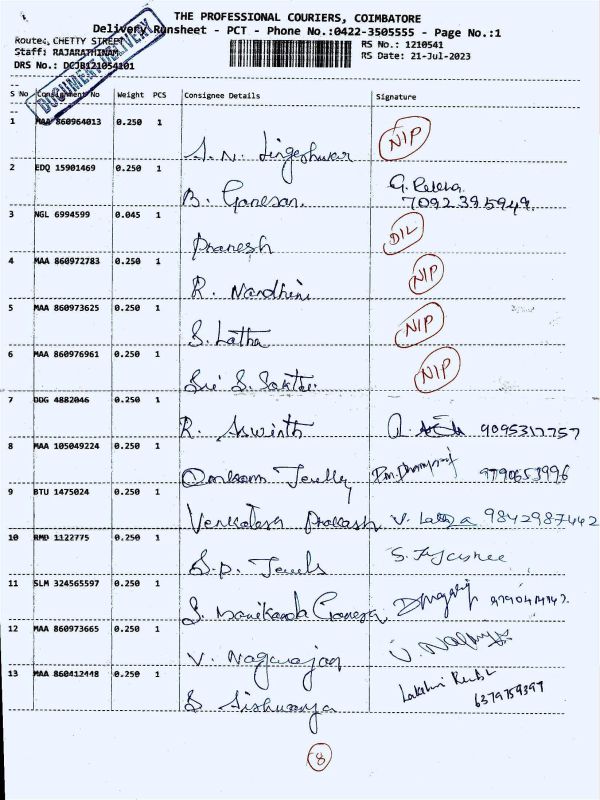 THE PROFESSIONAL COURIERS, COIMBATORE
Delivery Runsheet - PCT - Phone No.:0422-3505555 - Page No.:1
Route: CHETTY STREET
RS No.: 1210541
Staff: RAJARATHINAM
RS Date: 21-Jul-2023
DRS No.: DCJB121054101
DOCUMENT DELIVERY
S No Consignment No Weight PCS Consignee Details Signature
1 MAA 860964013 0.250 1
NIP
S. N. Lingeshwar
2 EDQ 15901469 0.250 1
G. Rekha
B. Ganesan. 7092395949.
3 NGL 6994599 0.045 1
Pranesh DIL
4 MAA 860972783 0.250 1
R. Nandhini NIP
5 MAA 860973625 0.250 1
S. Latha NIP
6 MAA 860976961 0.250 1
Sri S. Sakthi NIP
7 DDG 4882046 0.250 1
R. Aswinth 9095317757
8 MAA 105049224 0.250 1
9790653996
9 BTU 1475024 0.250 1
Venkatesa Prakash V. Latha 9842987442
10 RMD 1122775 0.250 1
S.P. Jewels S. Jayashree
11 SLM 324565597 0.250 1
S. Manikanda Ganesh
12 MAA 860973665 0.250 1
V. Nagarajan
13 MAA 860412448 0.250 1
Lakshmi
S Aishwarya 6379759397
8